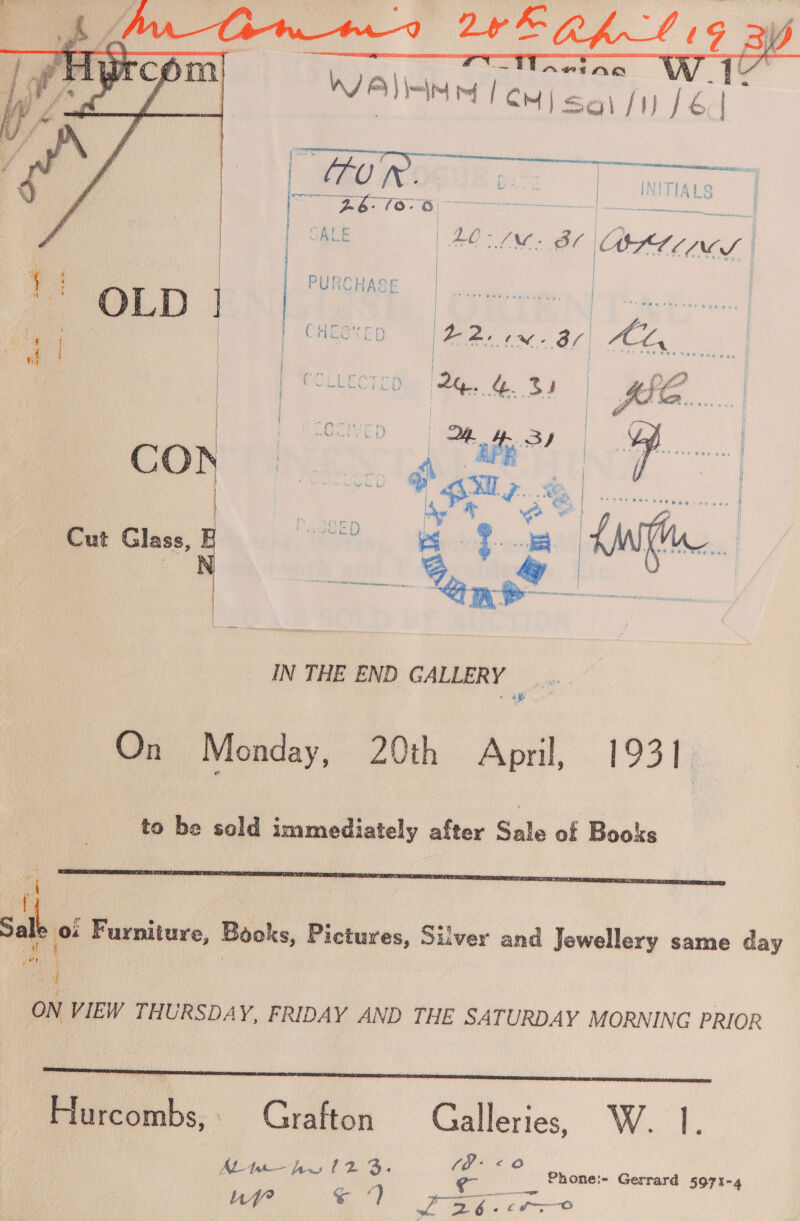 20th April 1931
Hurcom
W.1.
WA/HMM/CM/Sal/11/61
HUR.
DATE
INITIALS
26.10.0
SALE 20.IV.31 COMMINS
PURCHASE
CHECKED 22.IV.31
COLLECTED 24.4.31
RECEIVED 24.4.31
PASSED
APR
OLD
CON
Cut Glass, E
N
IN THE END GALLERY
On Monday, 20th April, 1931
to be sold immediately after Sale of Books
Sale of Furniture, Books, Pictures, Silver and Jewellery same day
ON VIEW THURSDAY, FRIDAY AND THE SATURDAY MORNING PRIOR
Hurcombs, Grafton Galleries, W. 1.
123.
Phone:- Gerrard 5971-4
£ 26.10.0